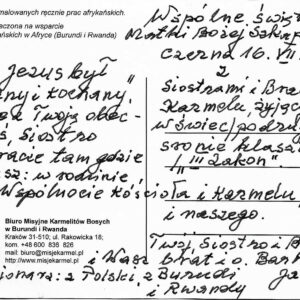 malowanych ręcznie prac afrykańskich.
aczona na wsparcie
ańskich w Afryce (Burundi i Rwanda)
Wspólne świę
Matki Bożej Szkap
czerna 16. VII.
Jezus był
ny i kochany,
Twoją obec-
ść, Siostro
racie tam gdzie
sz: w rodzinie
Wspólnocie Kościoła i Karmelu,
i naszego.
2
Siostrami i Bra
Karmelu, żyjąc
w świec
sronie klasz
"III Zakon"
Biuro Misyjne Karmelitów Bosych
w Burundi i Rwanda
Kraków 31-510; ul. Rakowicka 18;
kom. +48 600 836 826
mail: biuro@misjekarmel.pl
http://www.misjekarmel.pl
Twój, Siostro i B
i Wasz brat i o. Bar
z Polski, z Burundi
i Rwandy